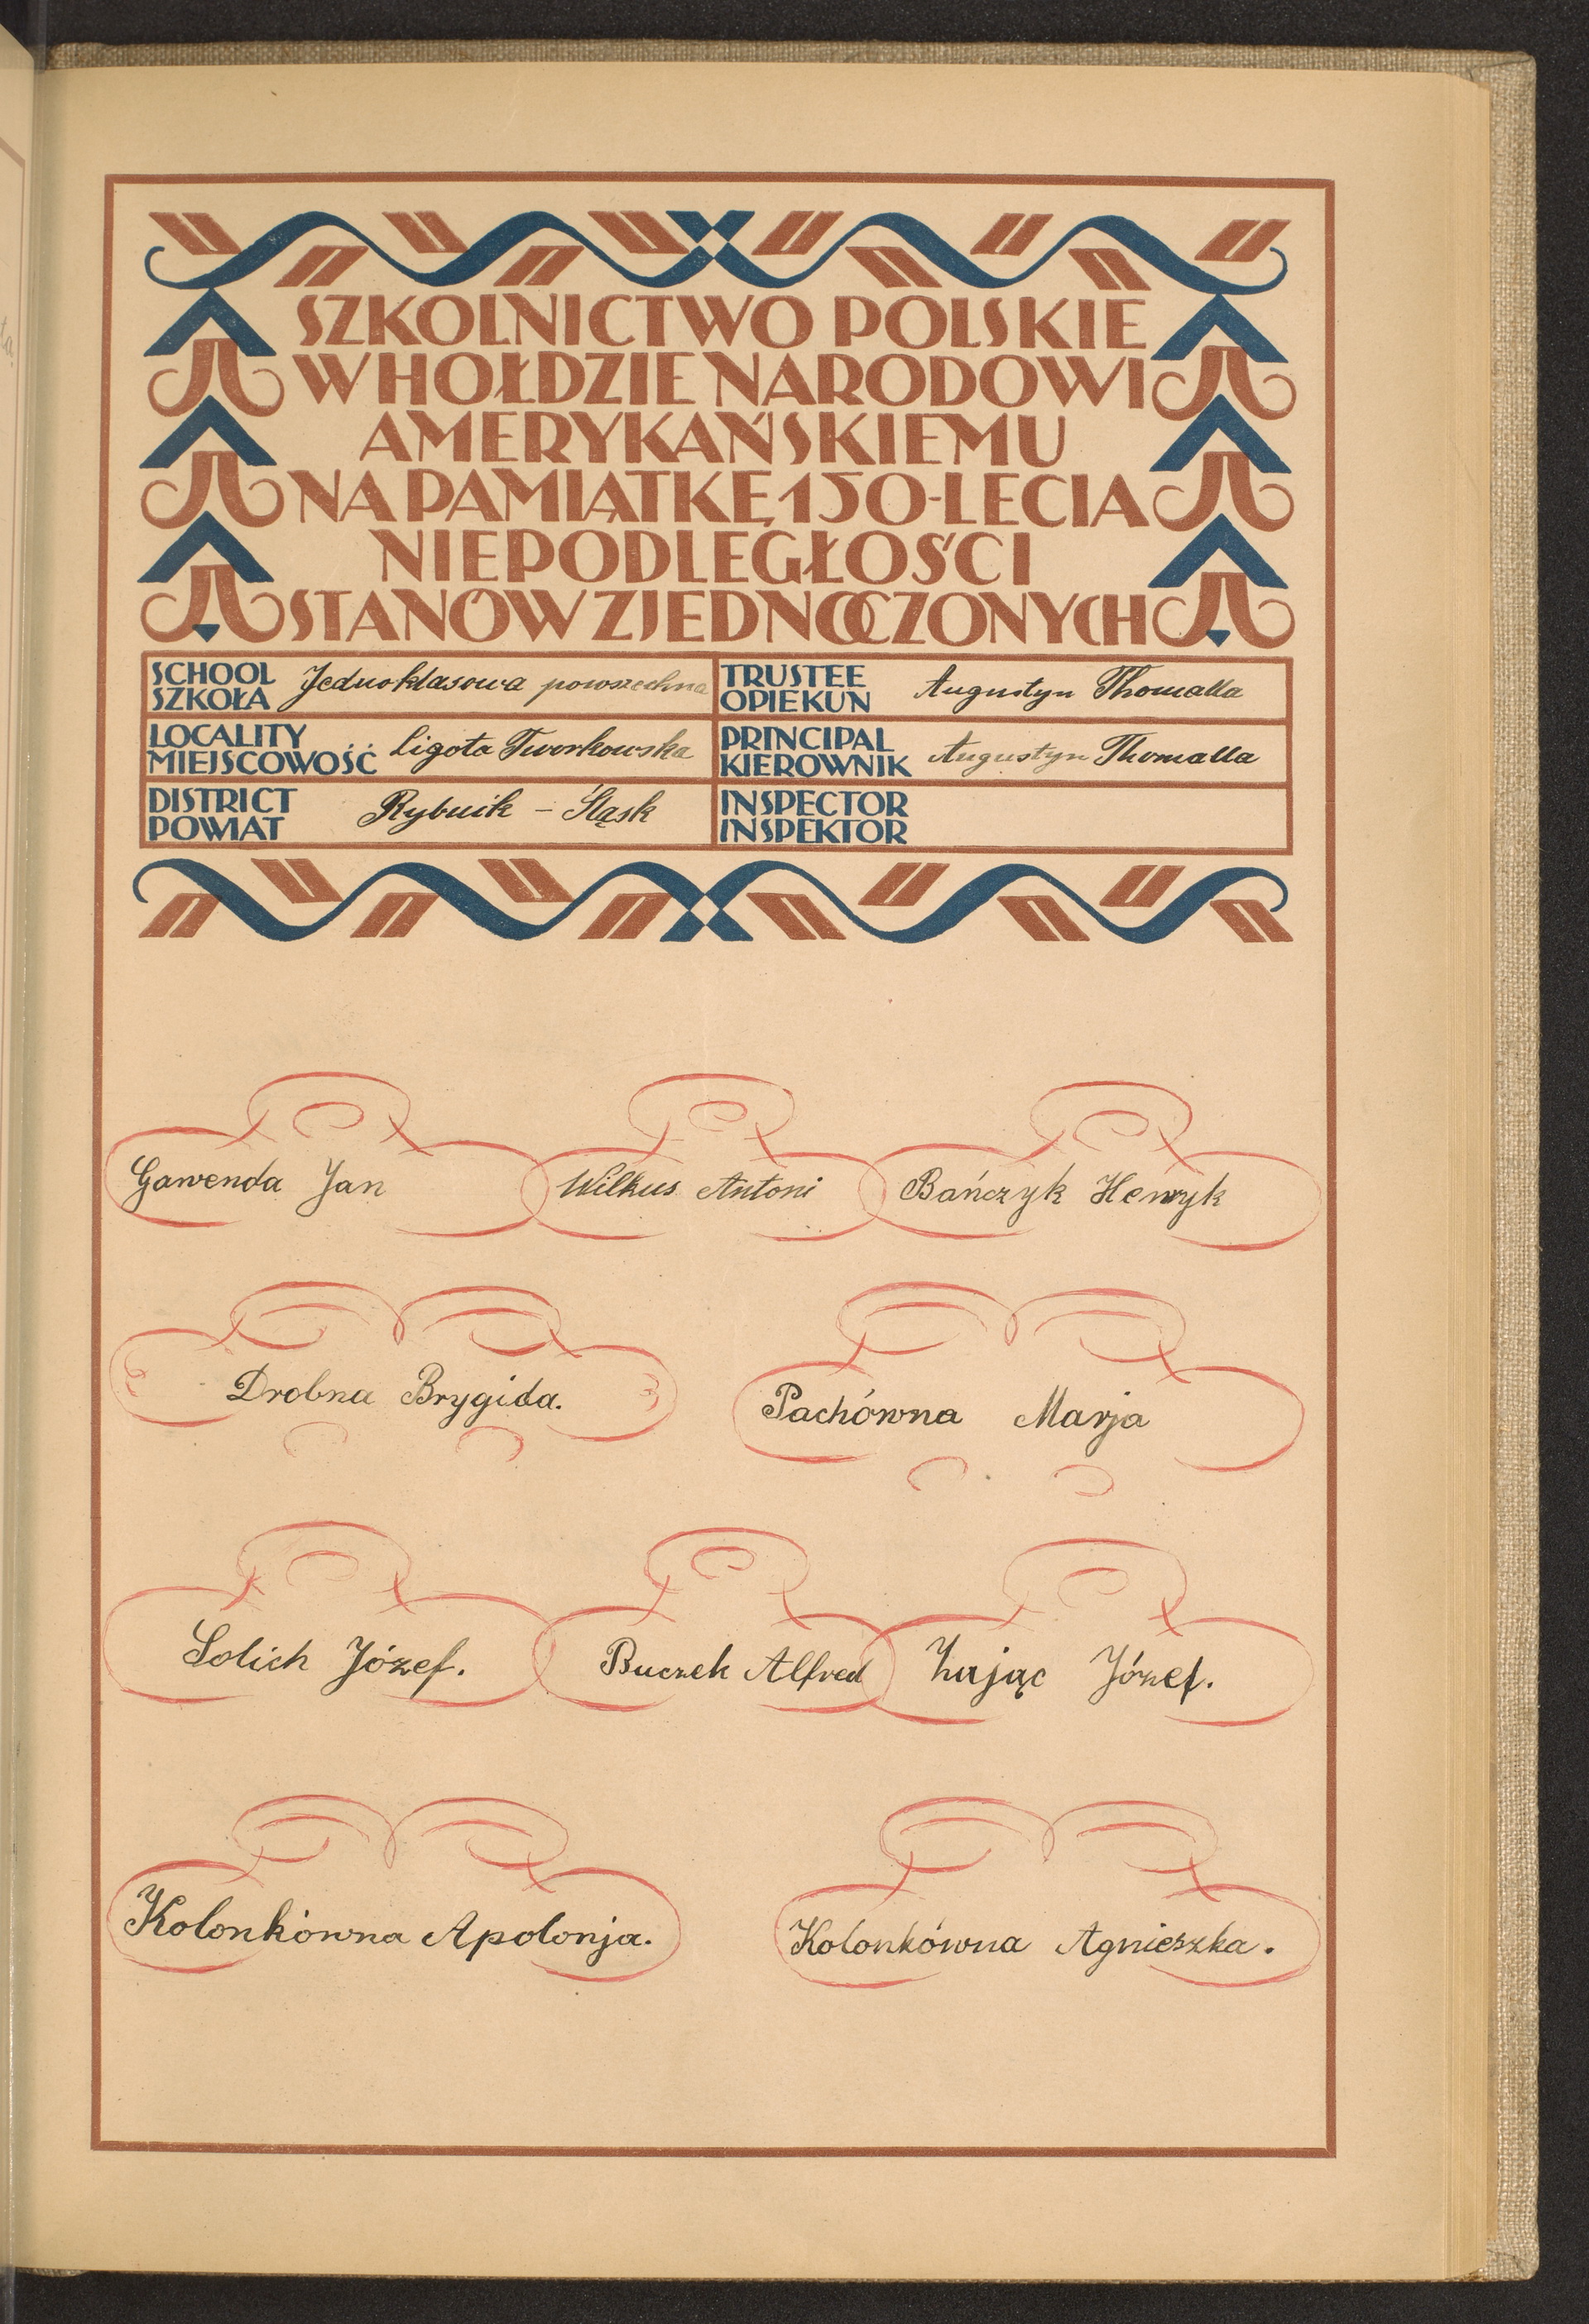 SZKOLNICTWO POLSKIE
W HOŁDZIE NARODOWI
AMERYKAŃSKIEMU
NA PAMIĄTKĘ 150-LECIA
NIEPODLEGŁOŚCI
STANÓW ZJEDNOCZONYCH
SCHOOL
SZKOŁA Jednoklasowa powszechna
TRUSTEE
OPIEKUN Augustyn Thomalla
LOCALITY
MIEJSCOWOŚĆ Ligota Tworkowska
PRINCIPAL
KIEROWNIK Augustyn Thomalla
DISTRICT
POWIAT Rybnik - Śląsk
INSPECTOR
INSPEKTOR
Gawenda Jan Wilkus Antoni Bańczyk Henryk
Drobna Brygida. Pachówna Marja
Solich Józef. Buczek Alfred Zając Józef.
Kolonkówna Apolonja. Kolonkówna Agnieszka.